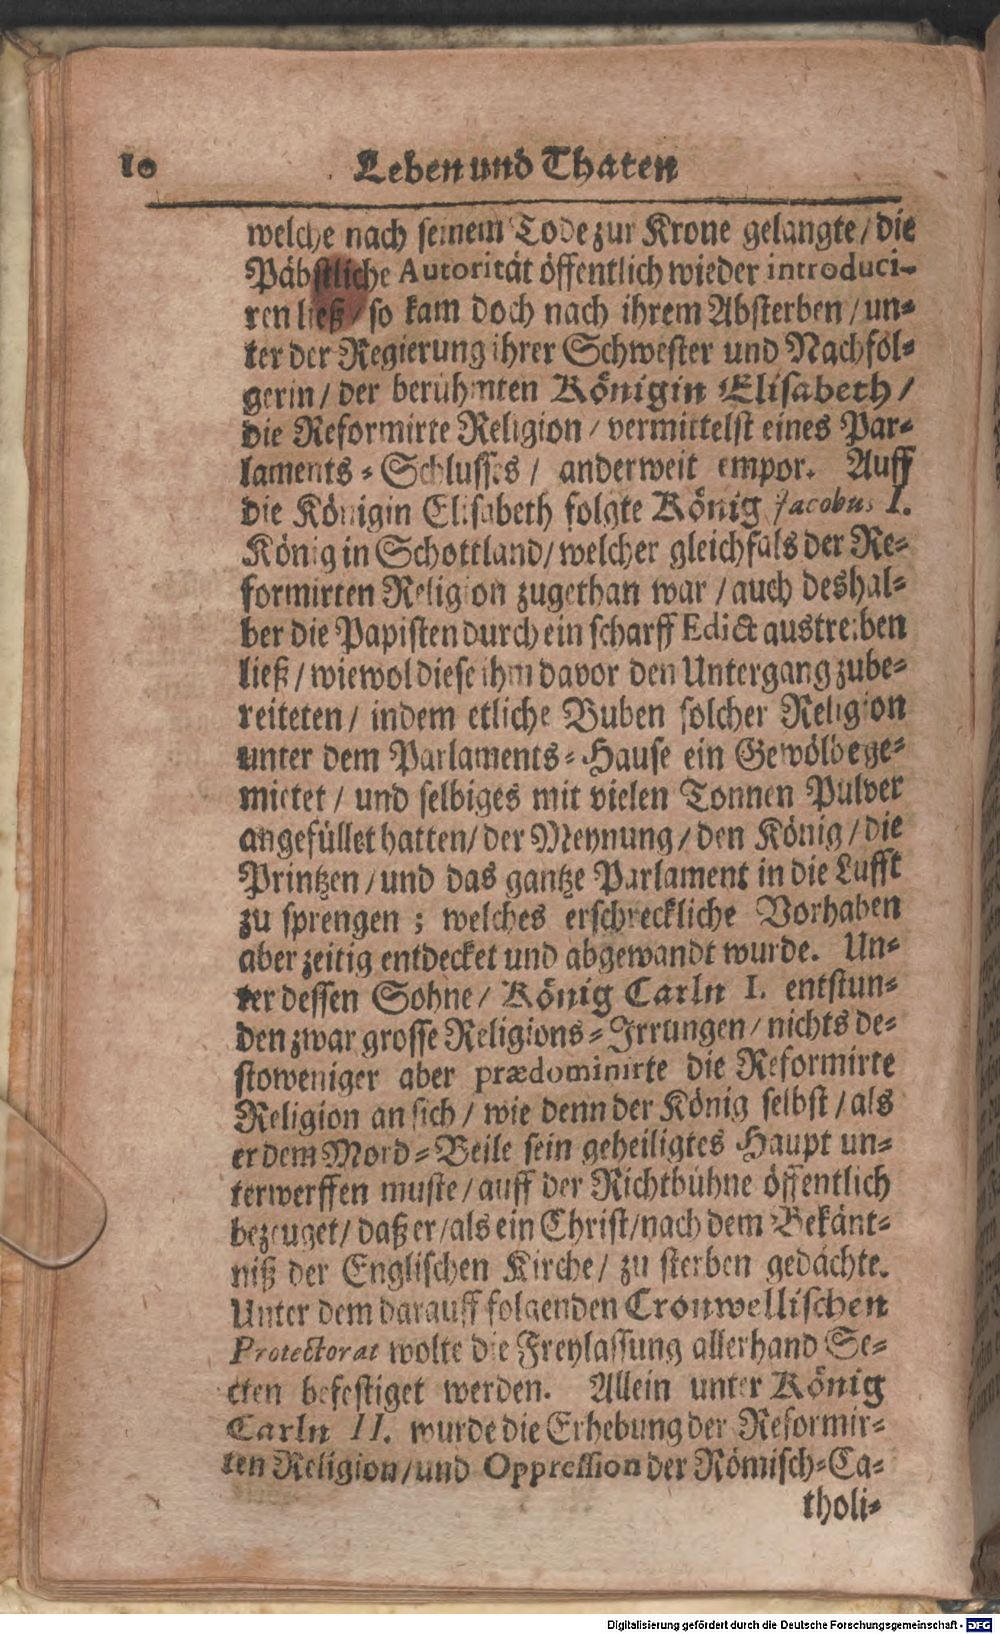 10 Leben und Thaten
welche nach seinem Tode zur Krone gelangte / die
Päbstliche Autorität öffentlich wieder introduci-
ren ließ / so kam doch nach ihrem Absterben / un-
ter der Regierung ihrer Schwester und Nachfol-
gerin / der berühmten Königin Elisabeth /
die Reformirte Religion / vermittelst eines Par-
laments-Schlusses / anderweit empor. Auff
die Königin Elisabeth folgte König Jacobus I.
König in Schottland / welcher gleichfals der Re-
formirten Religion zugethan war / auch deshal-
ber die Papisten durch ein scharff Edict austreiben
ließ / wiewol diese ihm davor den Untergang zube-
reiteten / indem etliche Buben solcher Religion
unter dem Parlaments-Hause ein Gewölbe ge-
mietet / und selbiges mit vielen Tonnen Pulver
angefüllet hatten / der Meynung / den König / die
Printzen / und das gantze Parlament in die Lufft
zu sprengen ; welches erschreckliche Vorhaben
aber zeitig entdecket und abgewandt wurde. Un-
ter dessen Sohne / König Carln I. entstun-
den zwar grosse Religions-Irrungen / nichts de-
stoweniger aber prædominirte die Reformirte
Religion an sich / wie denn der König selbst / als
er dem Mord-Beile sein geheiligtes Haupt un-
terwerffen muste / auff der Richtbühne öffentlich
bezeuget / daß er / als ein Christ / nach dem Bekänt-
niß der Englischen Kirche / zu sterben gedächte.
Unter dem darauff folgenden Cronwellischen
Protectorat wolte die Freylassung allerhand Se-
cten befestiget werden. Allein unter König
Carln II. wurde die Erhebung der Reformir-
ten Religion / und Oppression der Römisch-Ca-
tholi-
Digitalisierung gefördert durch die Deutsche Forschungsgemeinschaft - DFG